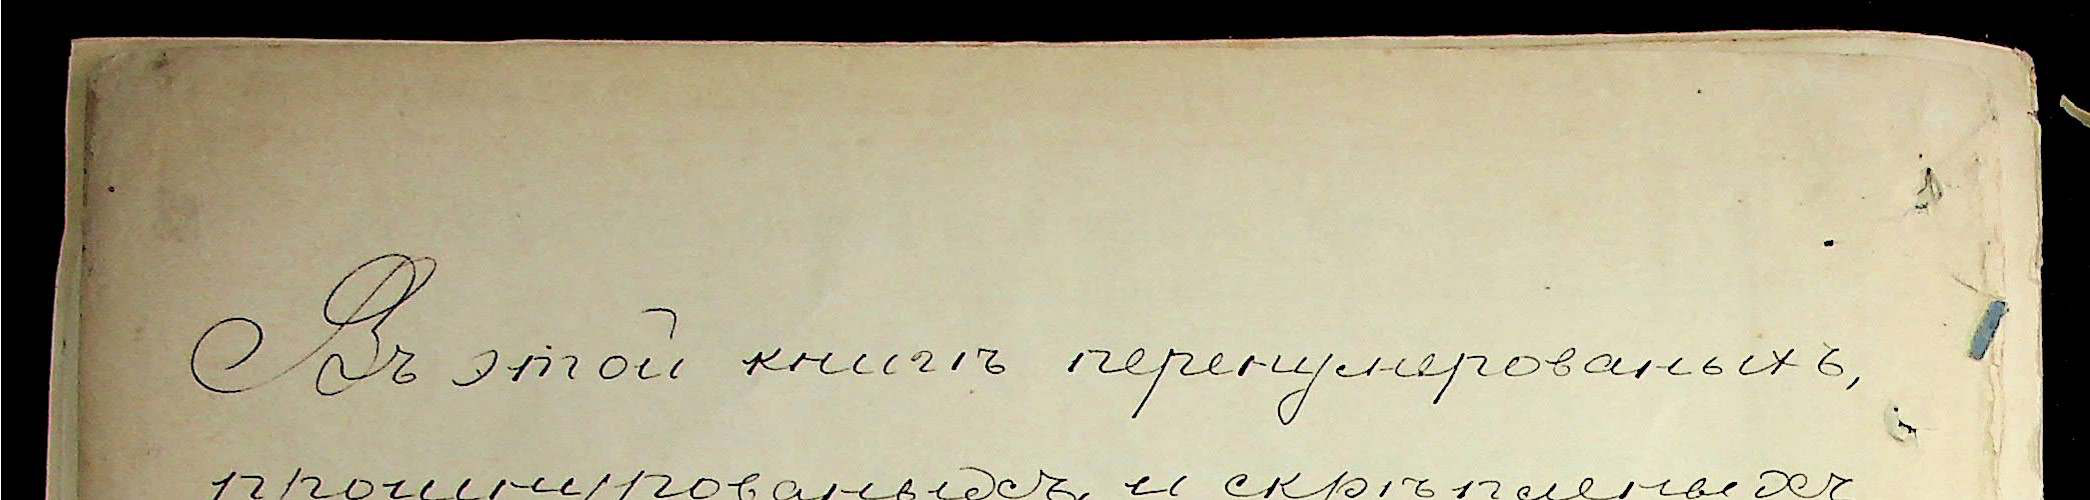 Въ этой книгѣ перенумерованыхъ,
прошнурованыхъ и скрѣпленыхъ